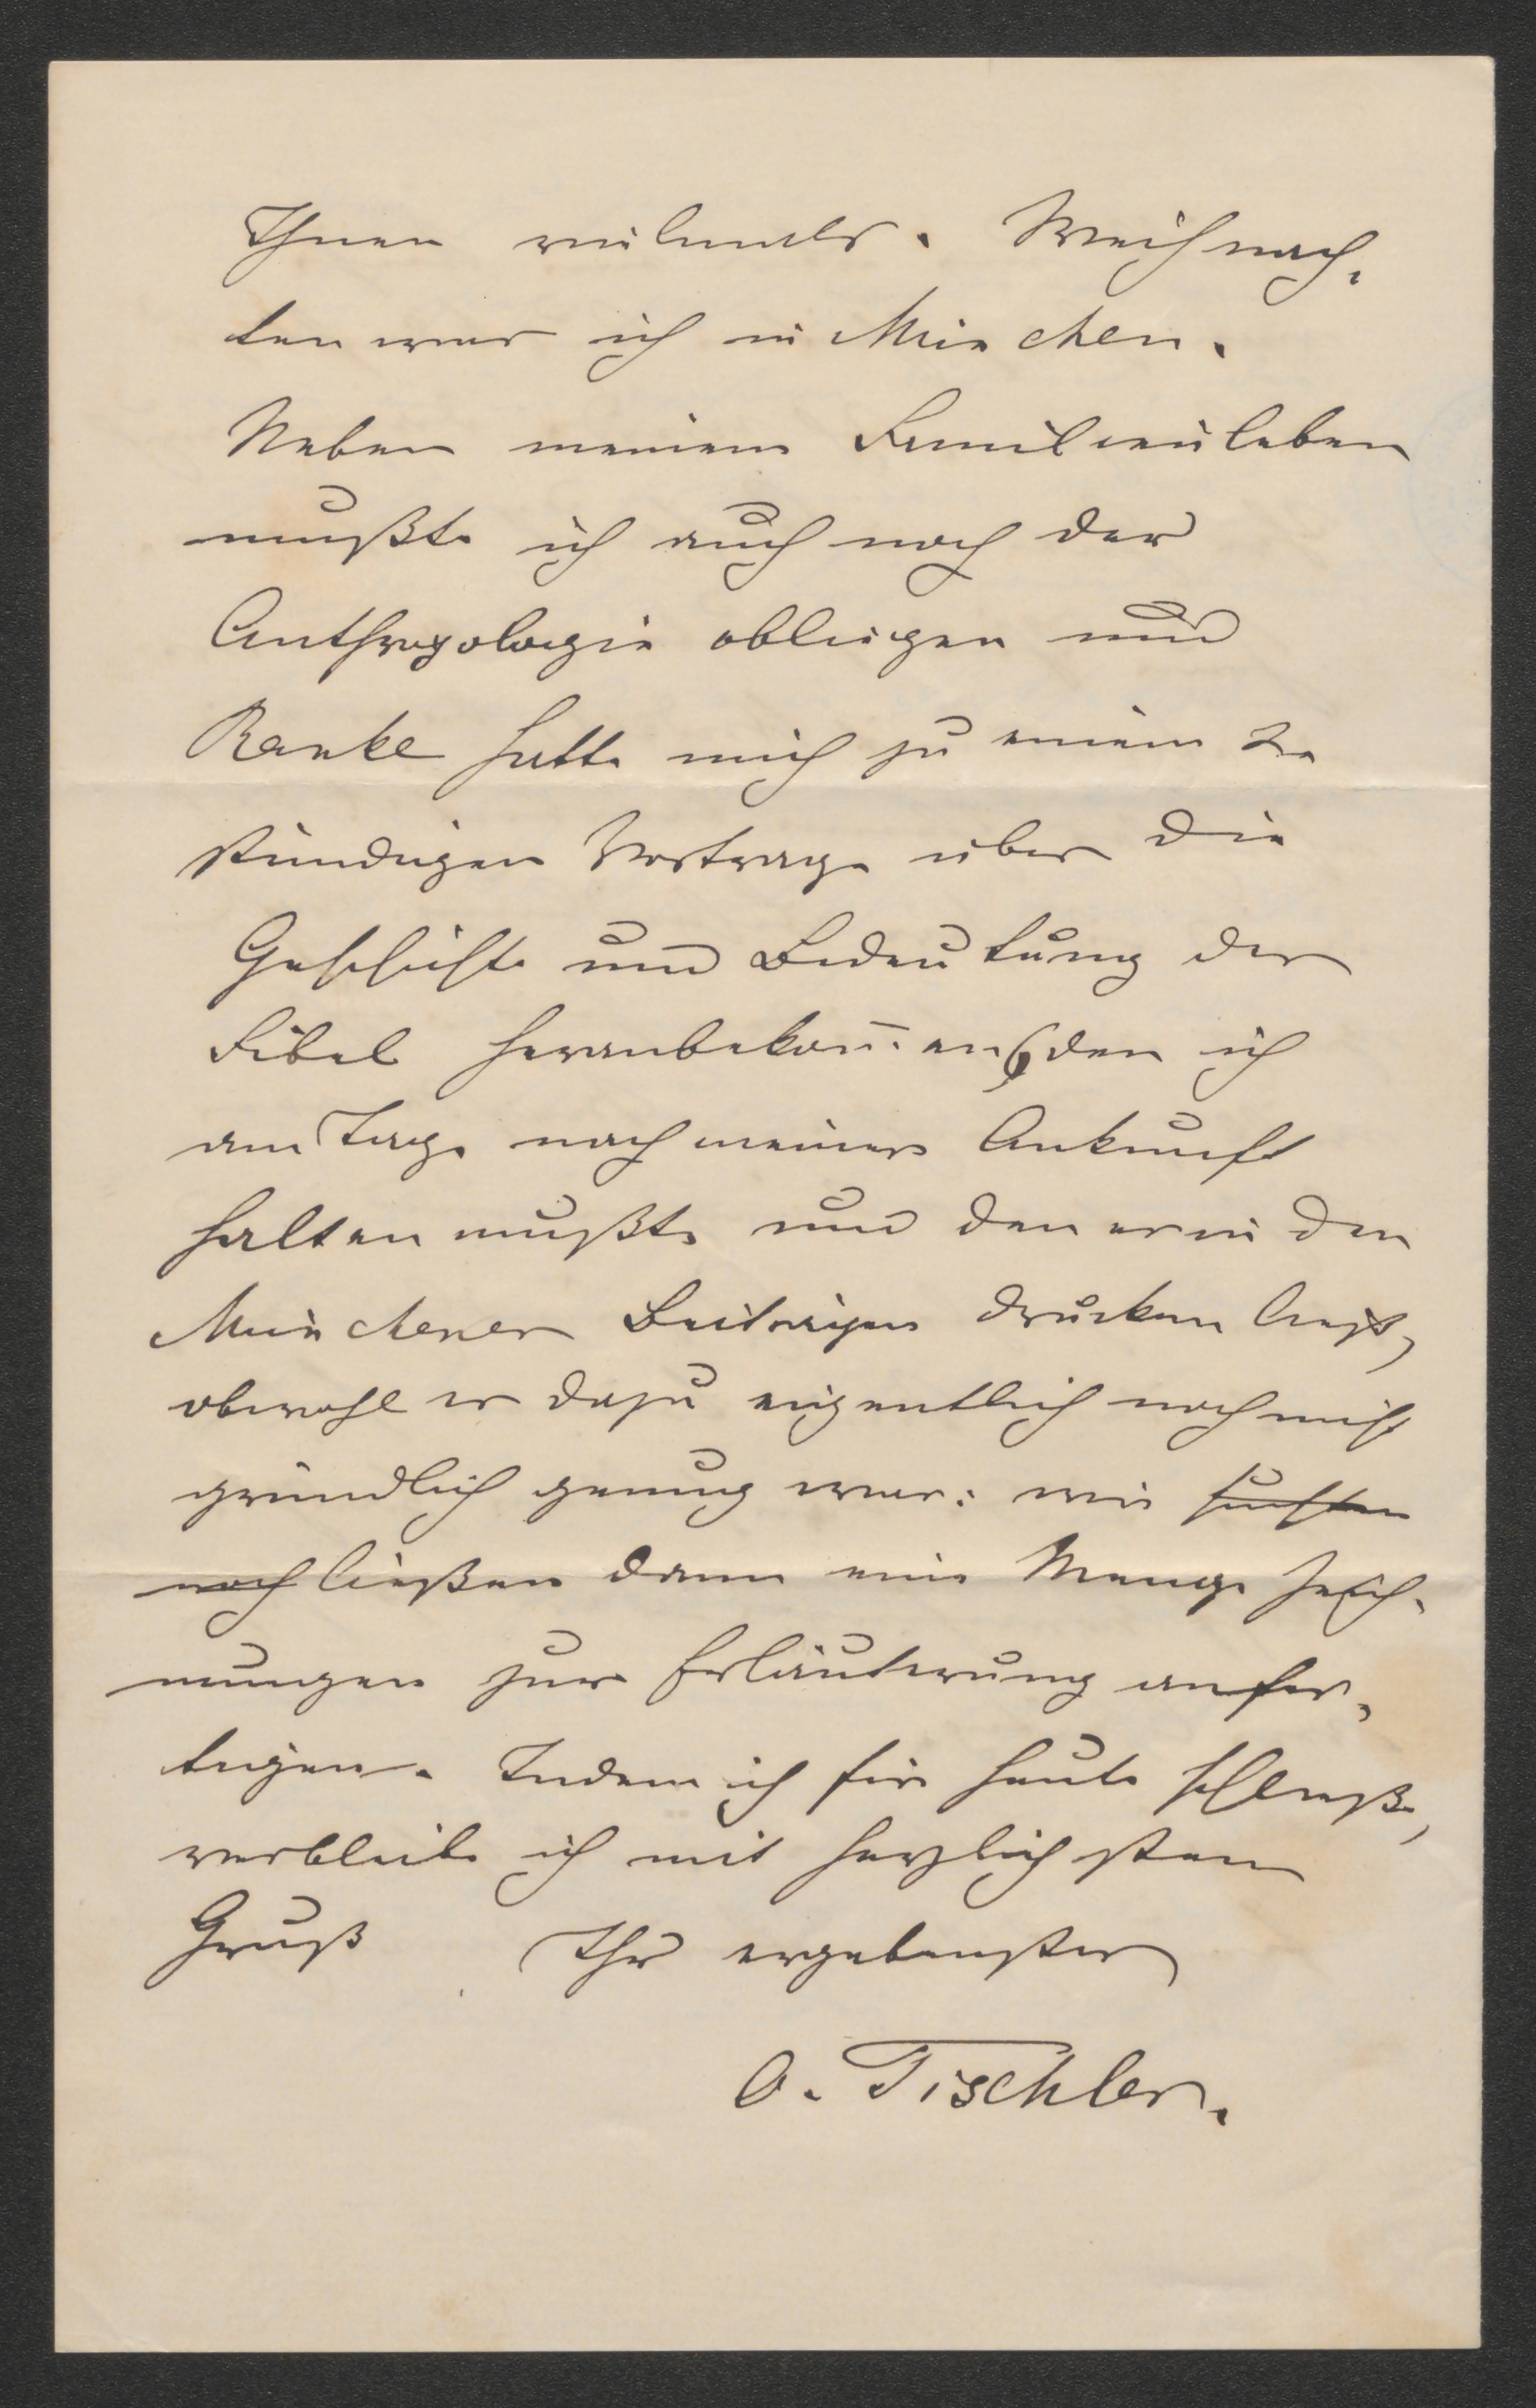 Ihnen vielmals. Weihnach-
ten war ich in München.
Neben meinem Familienleben
mußte ich auch noch der
Anthropologie obliegen und
Ranke hatte mich zu einem 2-
stündigen Vortrage über die
Geschichte und Bedeutung der
Fibel heranbekom̅en, den ich
am Tage nach meiner Ankunft
halten mußte und den er in den
Münchener Beiträgen drucken ließ,
obwohl er dazu eigentlich noch nicht
gründlich genug war: wir suchten
noch ließen dann eine Menge Zeich-
nungen zur Erläuterung anfer-
tigen. Indem ich für heute schließe,
verbleibe ich mit herzlichstem
Gruß Ihr ergebenster
O. Tischler.